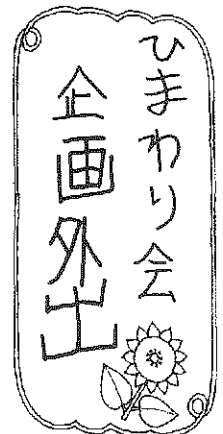 ひまわり会
企画外出